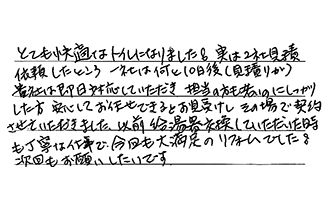 とても快適なトイレになりました。実は2社見積
依頼したところ 一社は何と10日後(見積りが)
貴社は即日対応していただき 担当の方も若いのにしっかり
した方 安心してお任せできるとお見受けし その場で契約
させていただきました。以前 給湯器交換していただいた時
も丁寧な仕事で、今回も大満足のリフォームでした。
次回もお願いしたいです